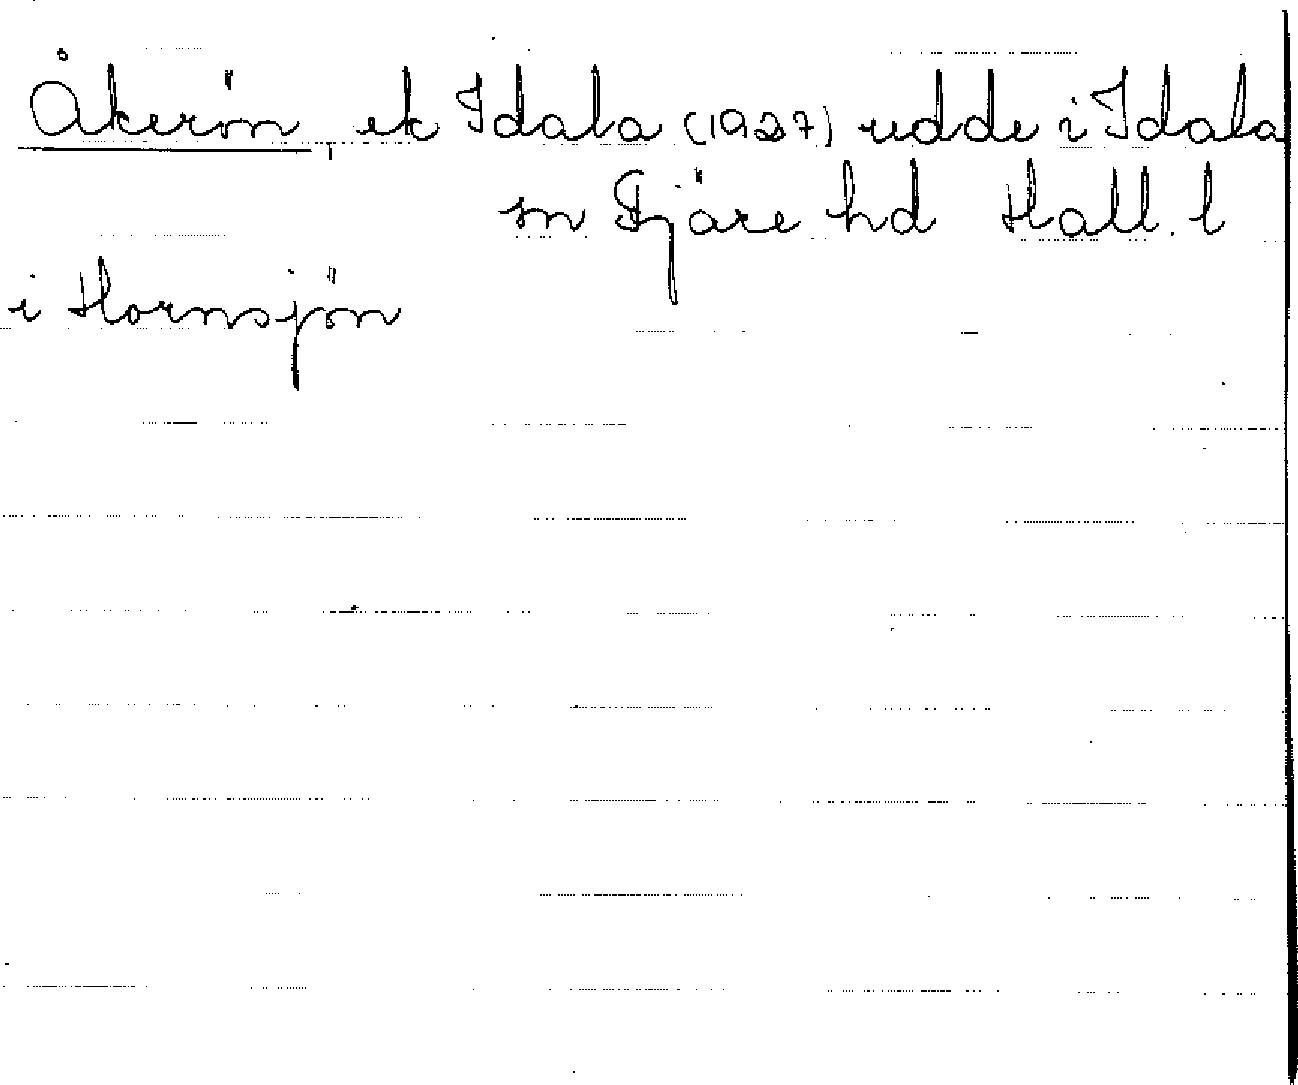 Åkerön ek Idala (1927) udde i Idala
sn Fjäre hd Hall. l
i Hornsjön